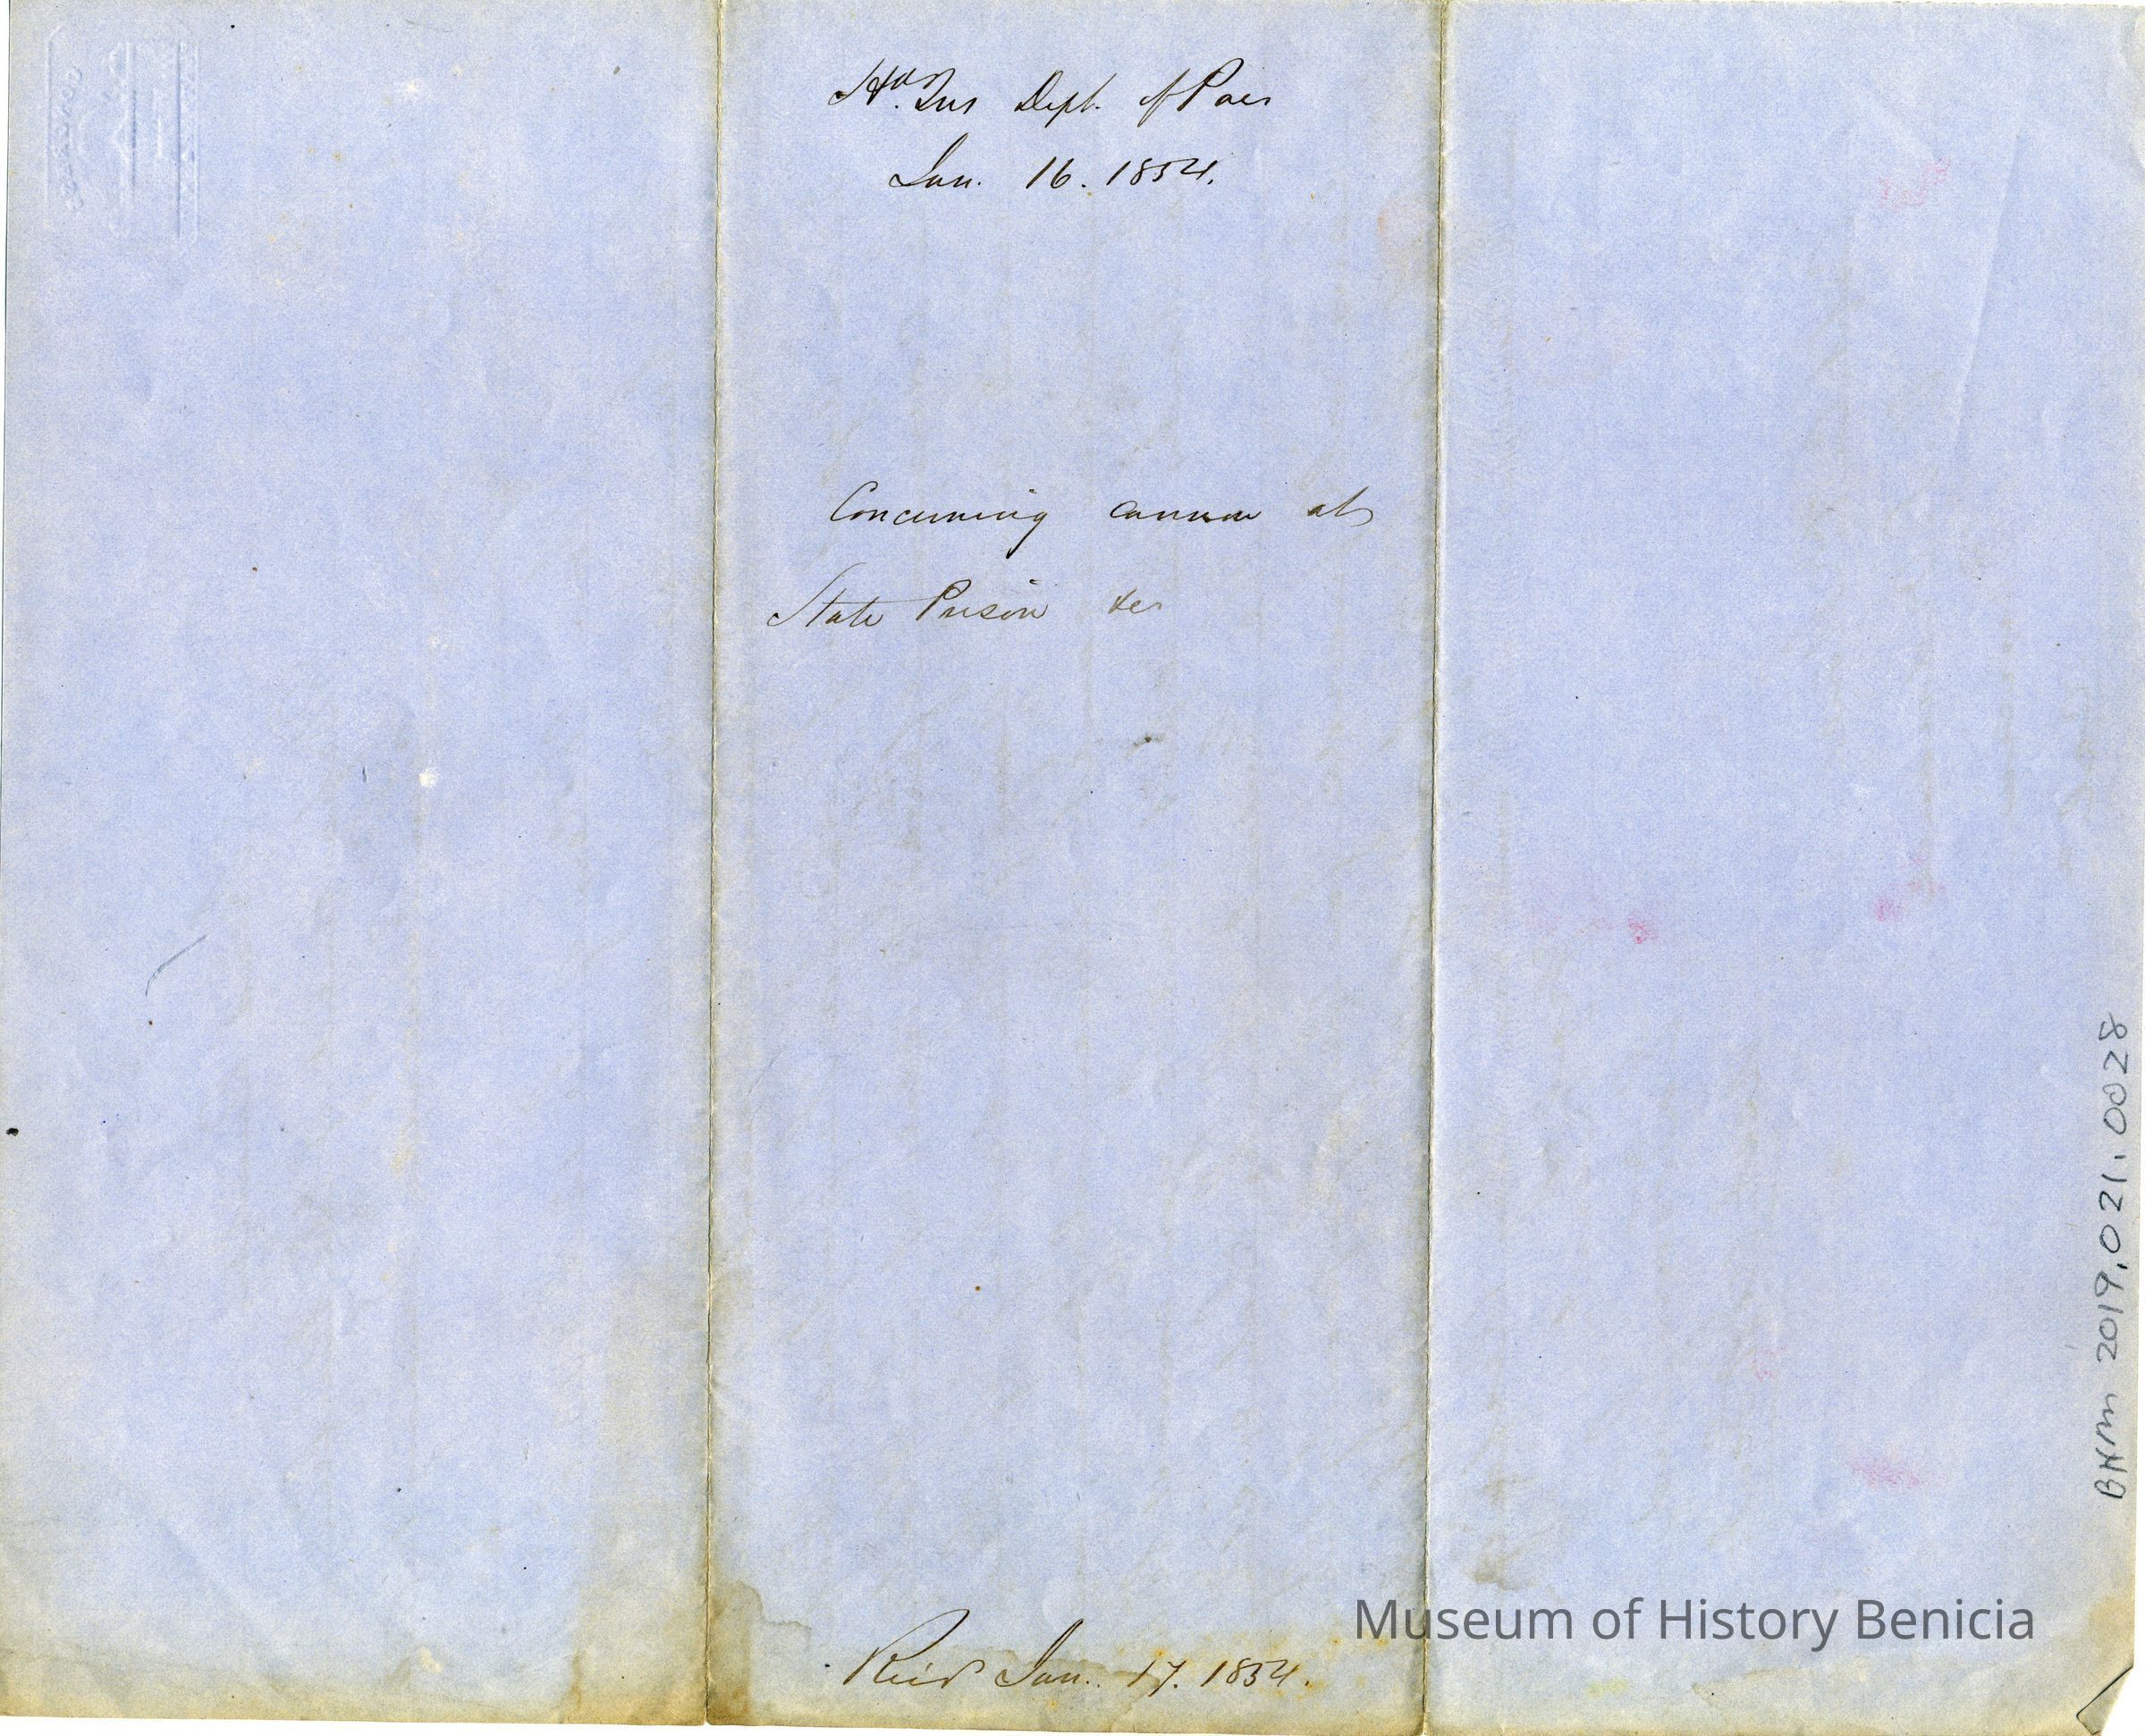 Hd. Qrs Dept. of Pac:
Jan. 16. 1854.
Concerning cannon at
State Prison &c:
Rec'd Jan. 17. 1854.
BHM 2019.021.0028
Museum of History Benicia